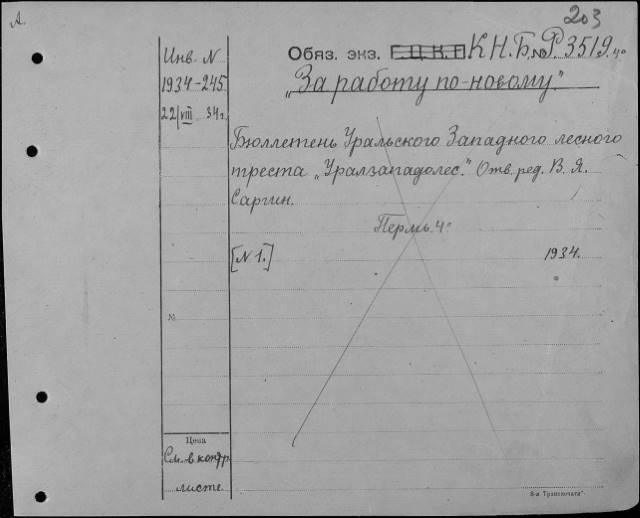 А.
203
Обяз. экз. Г.Ц.К.П К.Н.Б. № Р.3519 4º
Инв. N
1934-245
22/VIII 34 г.
„За работу по-новому."
Бюллетень Уральского Западного лесного
треста „Уралзападолес." Отв. ред. В. Я.
Саргин.
Пермь. 4º
[N 1.] 1934.
№
Цена
См. в контр.
листе.
8-я Транспечать